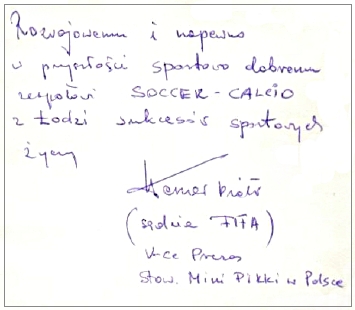 Rozwojowemu i napewno
w przyszłości sportowo dobremu
zespołowi SOCCER-CALCIO
z Łodzi sukcesów sportowych
życzy
Piotr
(sędzia FIFA)
V-ce Prezes
Stow. Mini Piłki w Polsce